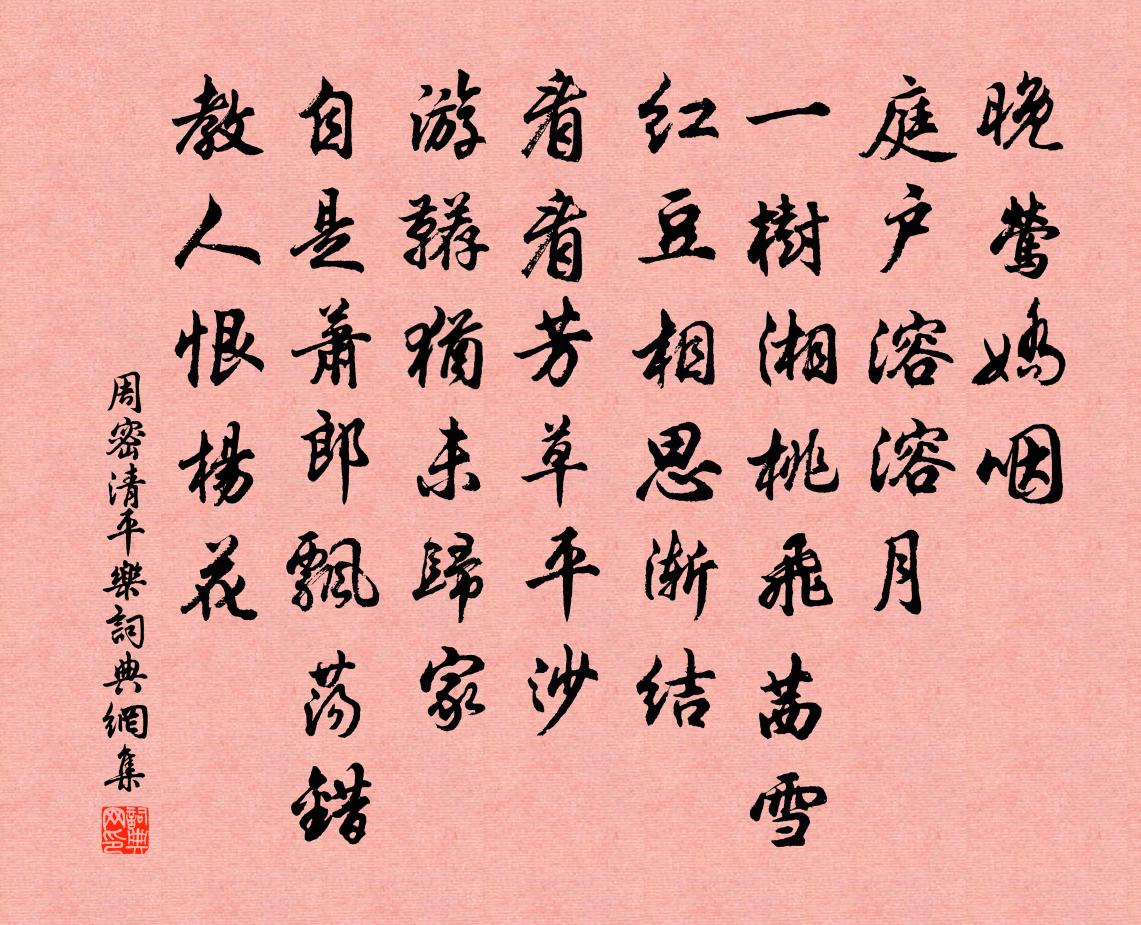 晚鶯嬌咽
庭戶溶溶月
一樹湘桃飛茜雪
紅豆相思漸結
看看芳草平沙
游韉猶未歸家
自是蕭郎飄蕩錯
教人恨楊花
周密清平樂詞典網集
詞典網印